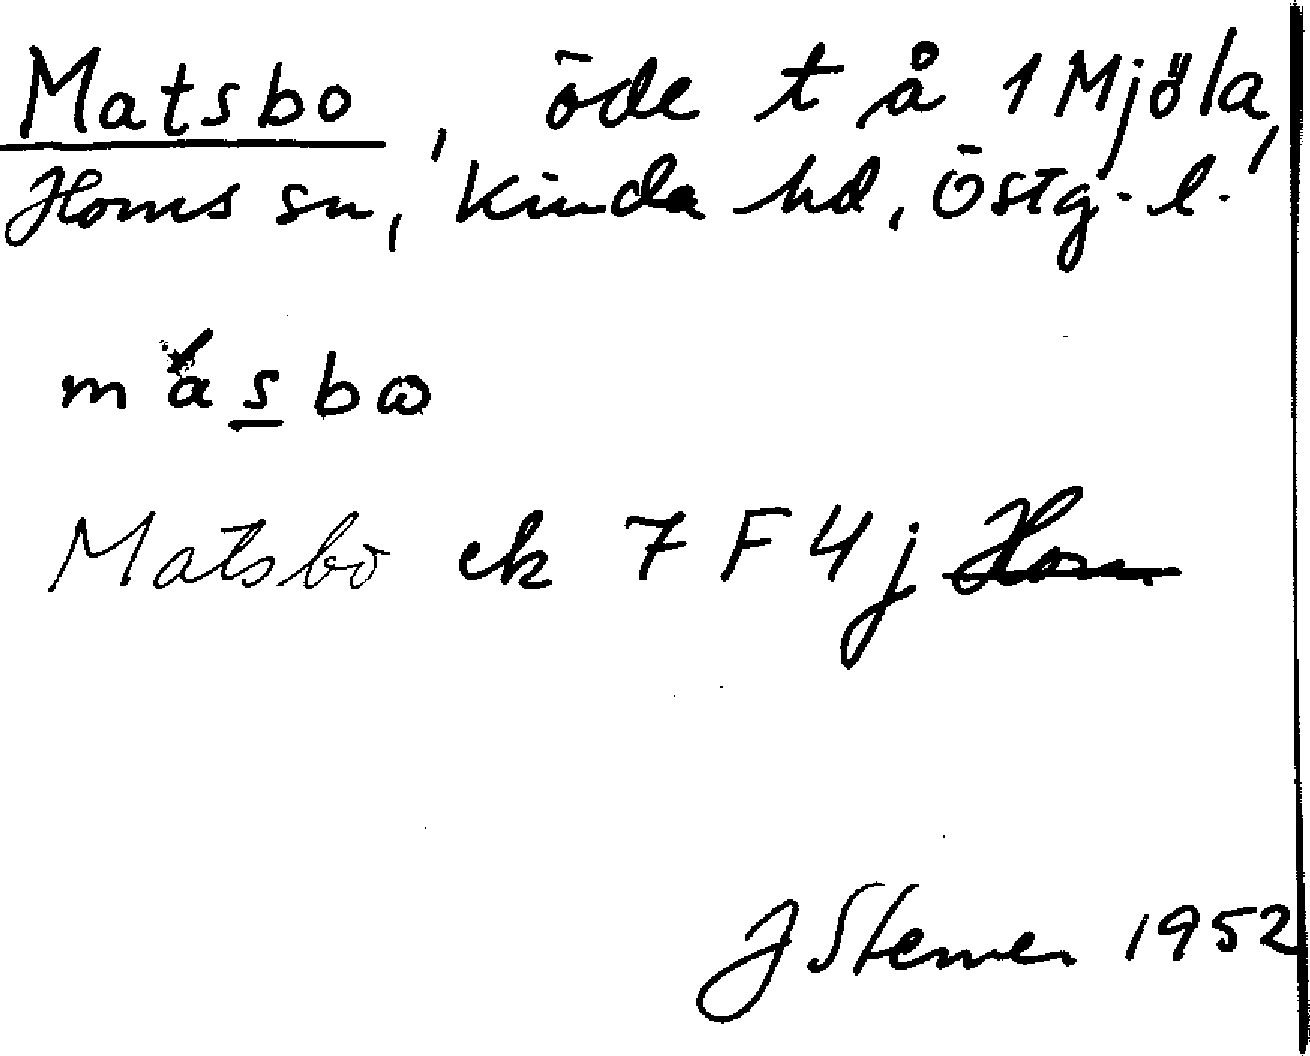 Matsbo, öde t å 1 Mjöla,
Horns sn, Kinda hd, Östg. l.
másbω
Matsbo ek 7 F 4 j Horn
J Sterner 1952